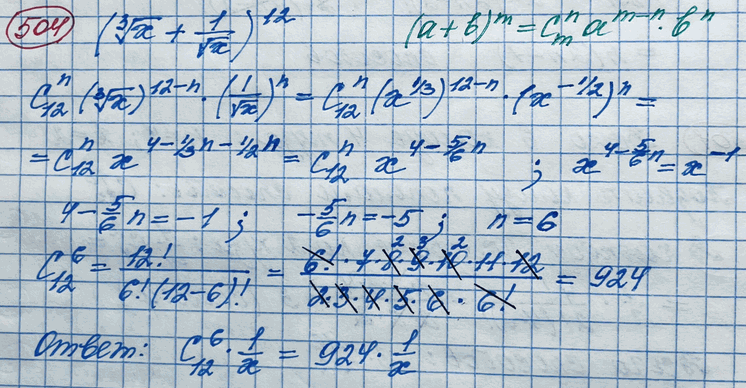 504 (∛x + 1/√x)^12 (a+b)^m = C_m^n a^(m-n) · b^n
C_12^n (∛x)^(12-n) · (1/√x)^n = C_12^n (x^(1/3))^(12-n) · (x^(-1/2))^n =
= C_12^n x^(4 - 1/3 n - 1/2 n) = C_12^n x^(4 - 5/6 n) ; x^(4 - 5/6 n) = x^(-1)
4 - 5/6 n = -1 ; -5/6 n = -5 ; n = 6
C_12^6 = 12! / 6!(12-6)! = 6! · 7 · 8 2 · 9 3 · 10 2 · 11 · 12 / 2 · 3 · 4 · 5 · 6 · 6! = 924
Ответ: C_12^6 · 1/x = 924 · 1/x